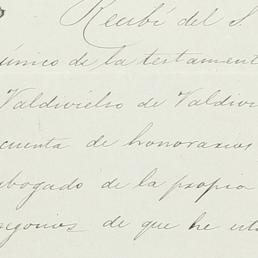 Recibí del S.
único de la testament
Valdivielso de Valdivi
cuenta de honorarios
abogado de la propia
negocios de que he